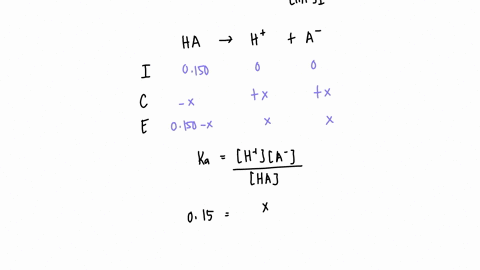 HA → H⁺ + A⁻
I 0.150 0 0
C -x +x +x
E 0.150-x x x
Ka = [H⁺][A⁻] / [HA]
0.15 = x